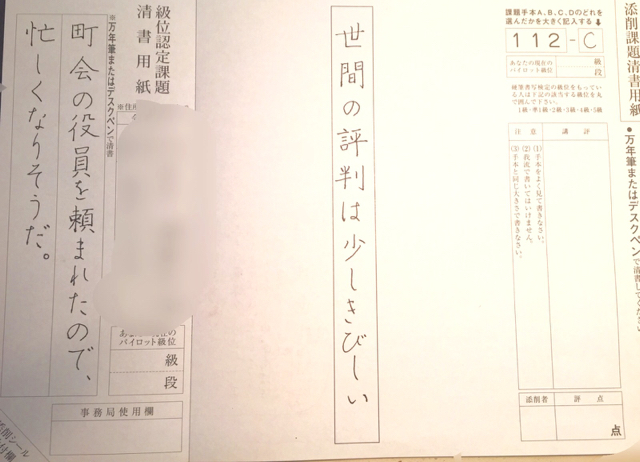 添削課題清書用紙
●万年筆またはデスクペンで清書してください
課題手本A、B、C、Dのどれを
選んだかを大きく記入する↓
112-C
あなたの現在の
パイロット級位
級
段
硬筆書写検定の級位をもっている人は下記の該当する級位を丸で囲んで下さい。
1級・準1級・2級・3級・4級・5級
講評
注意
(1)手本をよく見て書きなさい。
(2)我流で書いてはいけません。
(3)手本と同じ大きさで書きなさい。
添削者
評点
点
世間の評判は少しきびしい
級位認定課題
清書用紙
※万年筆またはデスクペンで清書
※住所
あなたの現在の
パイロット級位
級
段
事務局使用欄
町会の役員を頼まれたので、
忙しくなりそうだ。
シール